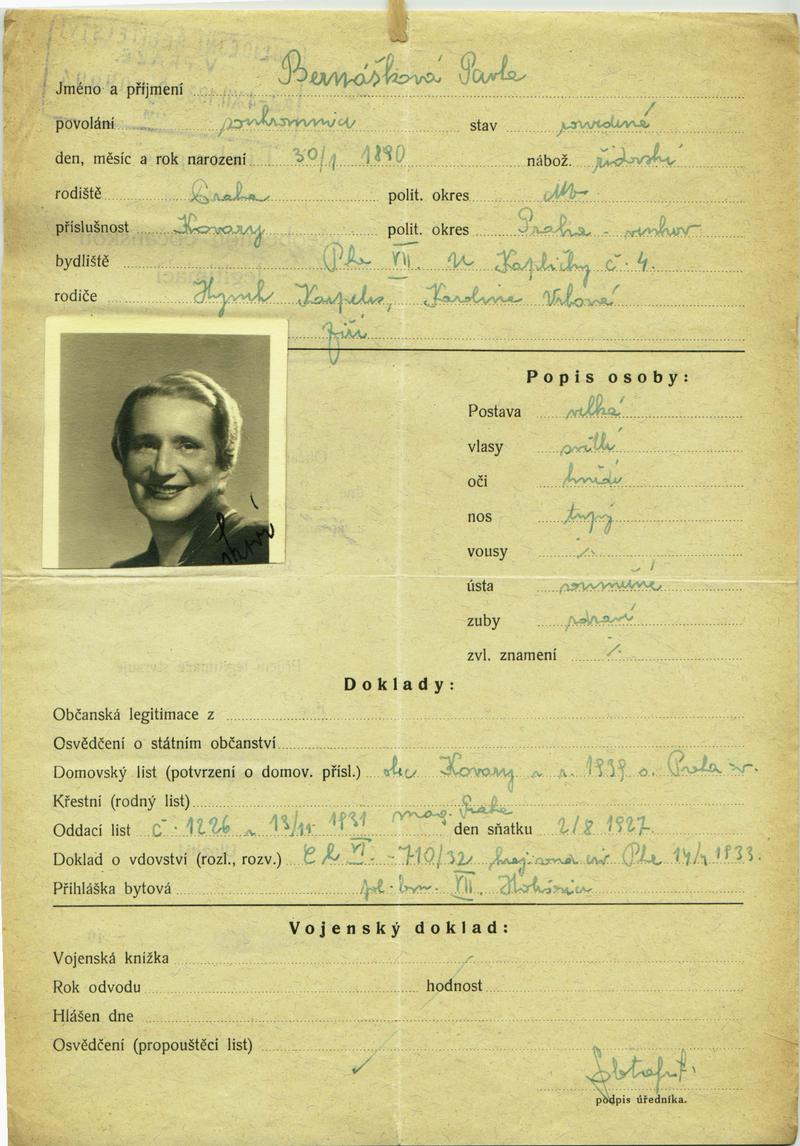 Jméno a příjmení Bernášková Pavla
povolání soukromnice stav rozvedená
den, měsíc a rok narození 30/1 1890 nábož. židovské
rodiště Praha polit. okres
příslušnost Kovary polit. okres Praha - venkov
bydliště Pha VII. U Kapličky č. 4.
rodiče Hynek Karpeles, Karolina Vrbová
Jiří
Popis osoby:
Postava velká
vlasy světlé
oči hnědé
nos tupý
vousy ./.
ústa souměrné
zuby zdravé
zvl. znamení ./.
Doklady:
Občanská legitimace z
Osvědčení o státním občanství
Domovský list (potvrzení o domov. přísl.) obec Kovary z r. 1939 o. Praha v.
Křestní (rodný list)
Oddací list č. 1226 z 13/11 1931 mag. Praha den sňatku 2/8 1927.
Doklad o vdovství (rozl., rozv.) Ck VI - 710/32 kraj. soud civ. Pha 14/1 1933.
Přihláška bytová pol. kom. VII. Holešovice
Vojenský doklad:
Vojenská knížka
Rok odvodu hodnost
Hlášen dne
Osvědčení (propouštěcí list)
podpis úředníka.